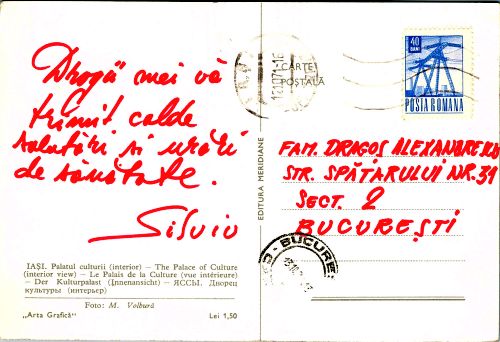 Dragii mei vă
trimit calde
salutări si urări
de sănătate.
Silviu
IAȘI. Palatul culturii (interior) — The Palace of Culture
(interior view) — Le Palais de la Culture (vue intérieure)
— Der Kulturpalast (Innenansicht) — ЯССЫ. Дворец
культуры (интерьер)
Foto: M. Volbură
„Arta Grafică“ Lei 1,50
EDITURA MERIDIANE
CARTE
POȘTALĂ
40
BANI
POSTA ROMANA
FAM. DRAGOȘ
STR. SPĂTARULUI NR. 31
SECT. 2
BUCUREȘTI